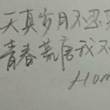 天真岁月不忍欺
青春荒唐我不
Hom